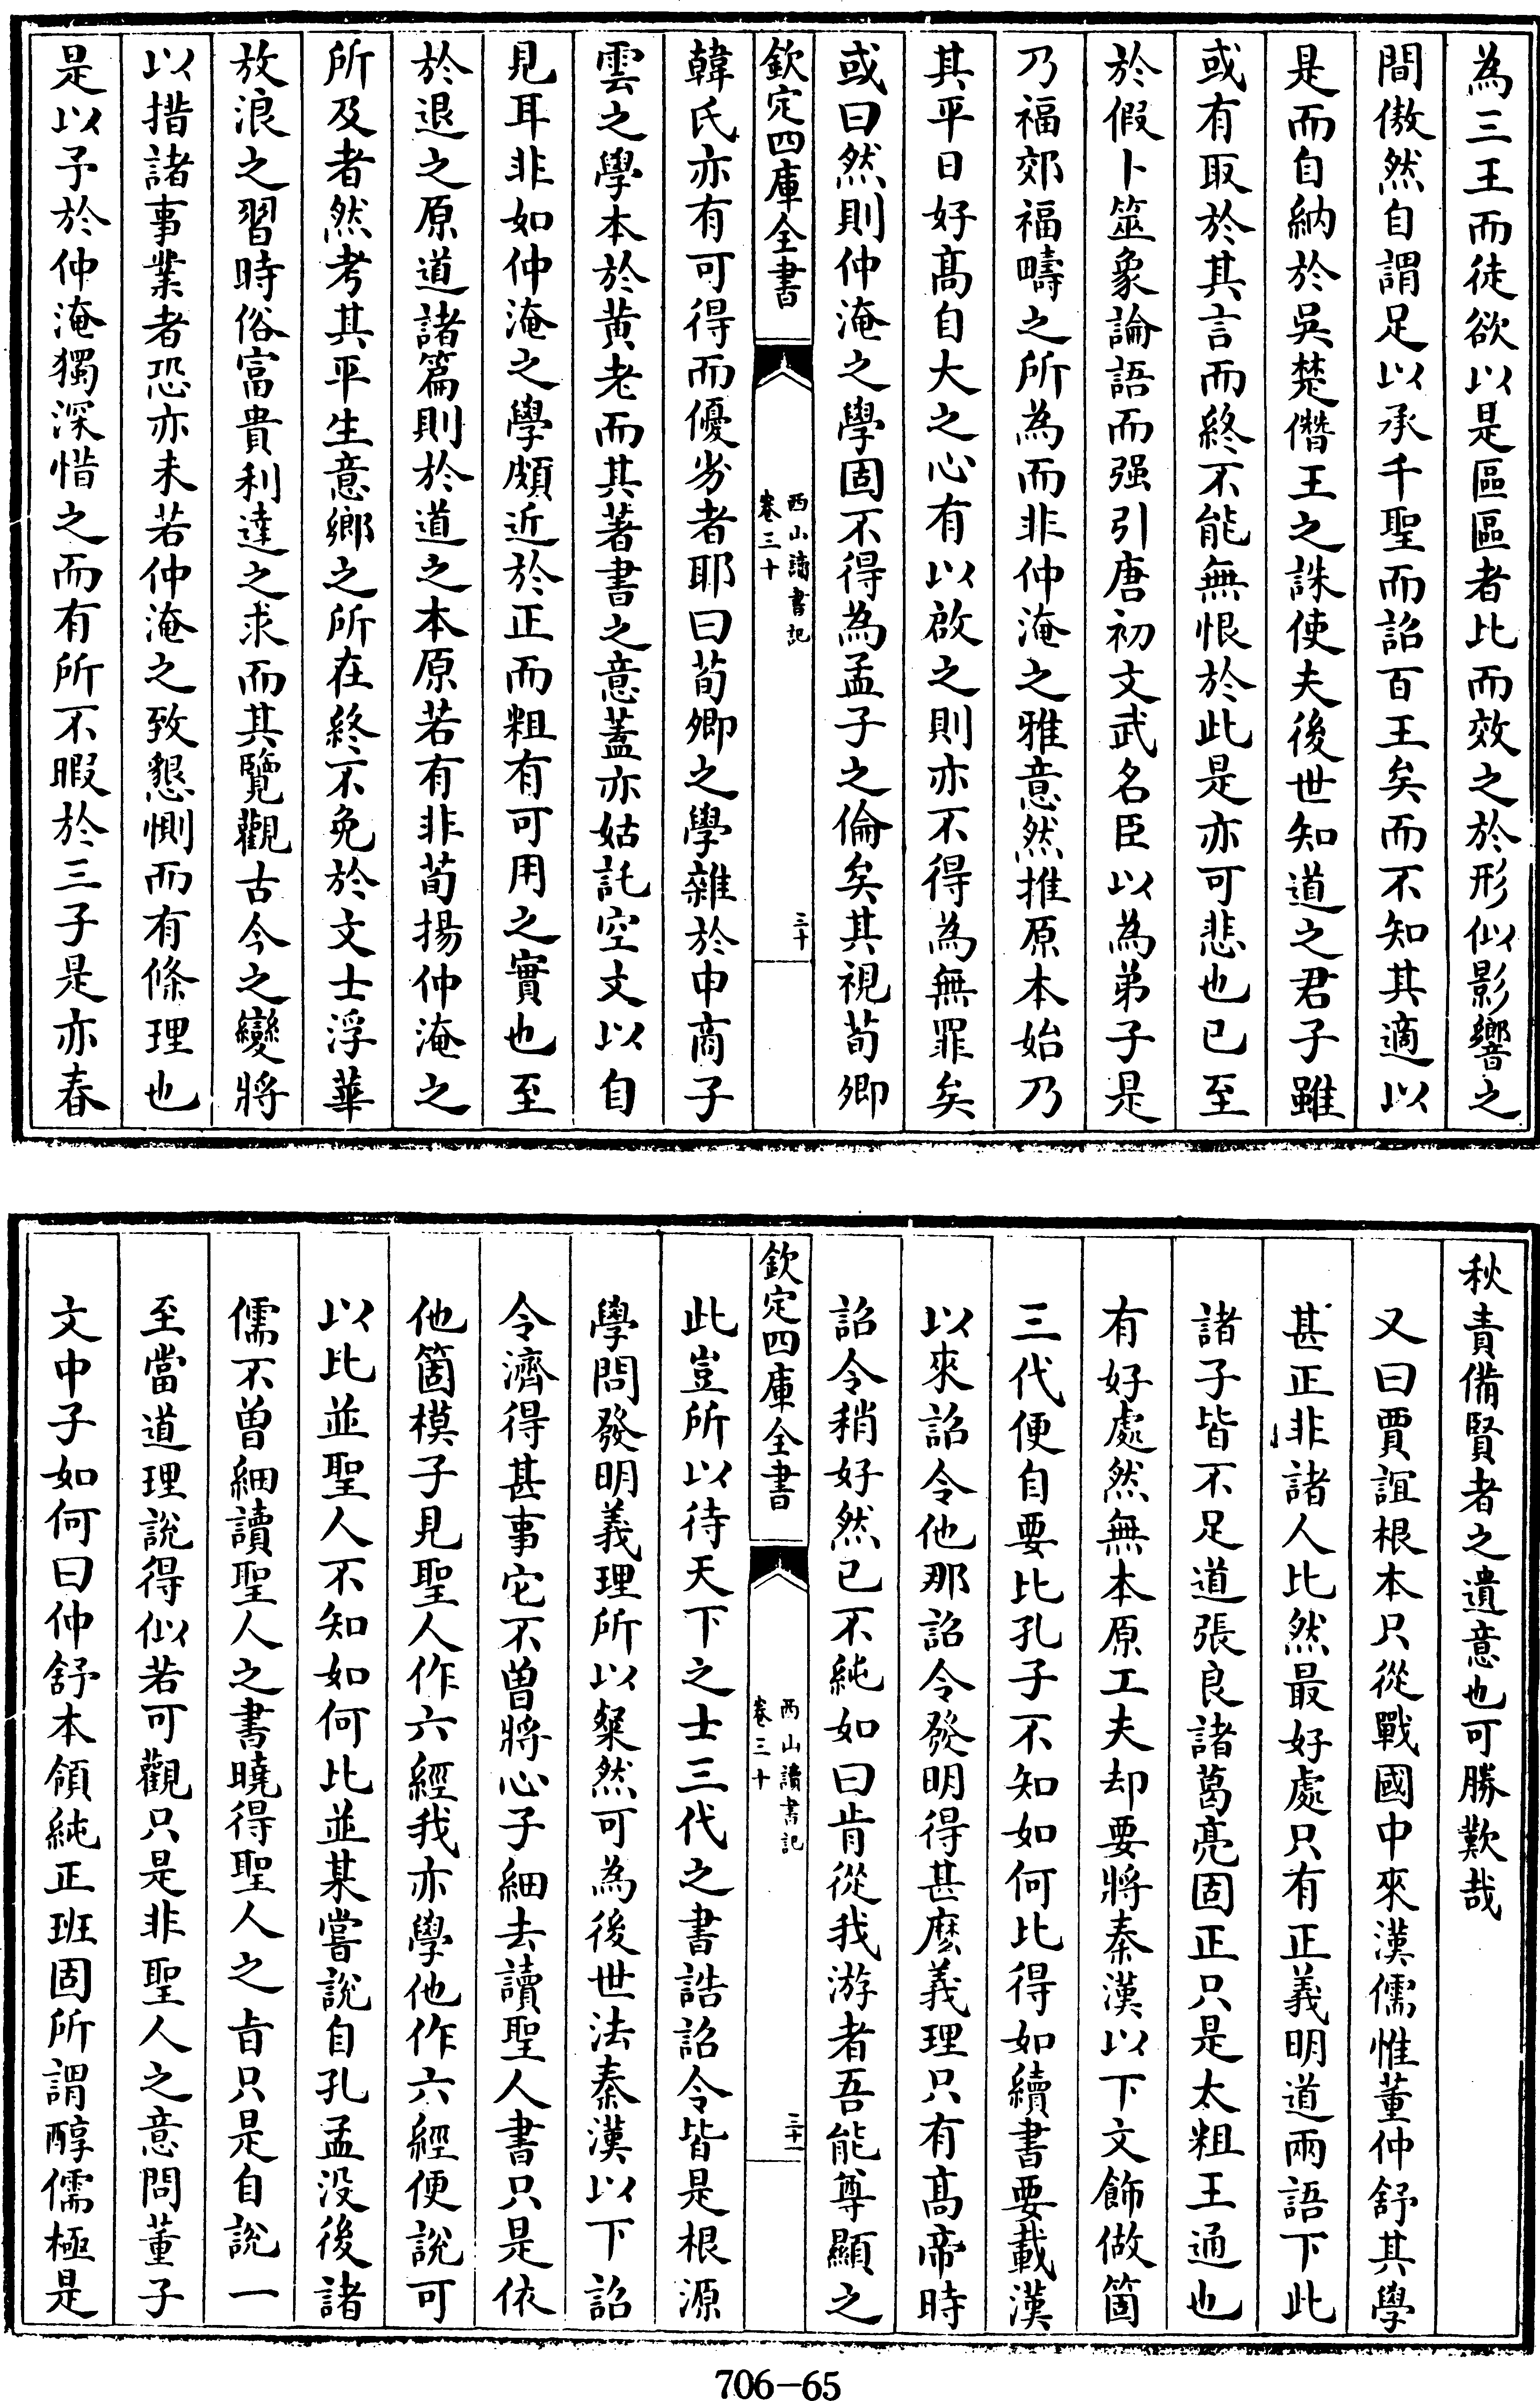 為三王而徒欲以是區區者比而效之於形似影響之
間傲然自謂足以承千聖而詔百王矣而不知其適以
是而自納於吳楚僭王之誅使夫後世知道之君子雖
或有取於其言而終不能無恨於此是亦可悲也已至
於假卜筮象論語而强引唐初文武名臣以為弟子是
乃福郊福畤之所為而非仲淹之雅意然推原本始乃
其平日好髙自大之心有以啟之則亦不得為無罪矣
或曰然則仲淹之學固不得為孟子之倫矣其視荀卿
欽定四庫全書
西山讀書記
卷三十
三十
韓氏亦有可得而優劣者耶曰荀卿之學雜於申商子
雲之學本於黃老而其著書之意蓋亦姑託空文以自
見耳非如仲淹之學頗近於正而粗有可用之實也至
於退之原道諸篇則於道之本原若有非荀揚仲淹之
所及者然考其平生意鄉之所在終不免於文士浮華
放浪之習時俗富貴利達之求而其覽觀古今之變將
以措諸事業者恐亦未若仲淹之致懇惻而有條理也
是以予於仲淹獨深惜之而有所不暇於三子是亦春
秋責備賢者之遺意也可勝歎哉
又曰賈誼根本只從戰國中來漢儒惟董仲舒其學
甚正非諸人比然最好處只有正義明道兩語下此
諸子皆不足道張良諸葛亮固正只是太粗王通也
有好處然無本原工夫却要將秦漢以下文飾做箇
三代便自要比孔子不知如何比得如續書要載漢
以來詔令他那詔令發明得甚麽義理只有髙帝時
詔令稍好然已不純如曰肯從我游者吾能尊顯之
欽定四庫全書
西山讀書記
卷三十
三十一
此豈所以待天下之士三代之書誥詔令皆是根源
學問發明義理所以粲然可為後世法秦漢以下詔
令濟得甚事它不曽將心子細去讀聖人書只是依
他箇模子見聖人作六經我亦學他作六經便說可
以比並聖人不知如何比並某嘗說自孔孟没後諸
儒不曽細讀聖人之書曉得聖人之㫖只是自說一
至當道理說得似若可觀只是非聖人之意問董子
文中子如何曰仲舒本領純正班固所謂醇儒極是
706-65